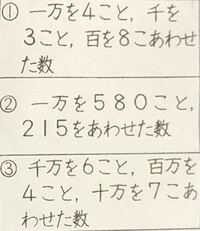 ① 一万を4こと，千を
3こと，百を8こあわせ
た数
② 一万を580こと，
215をあわせた数
③ 千万を6こと，百万を
4こと，十万を7こあ
わせた数